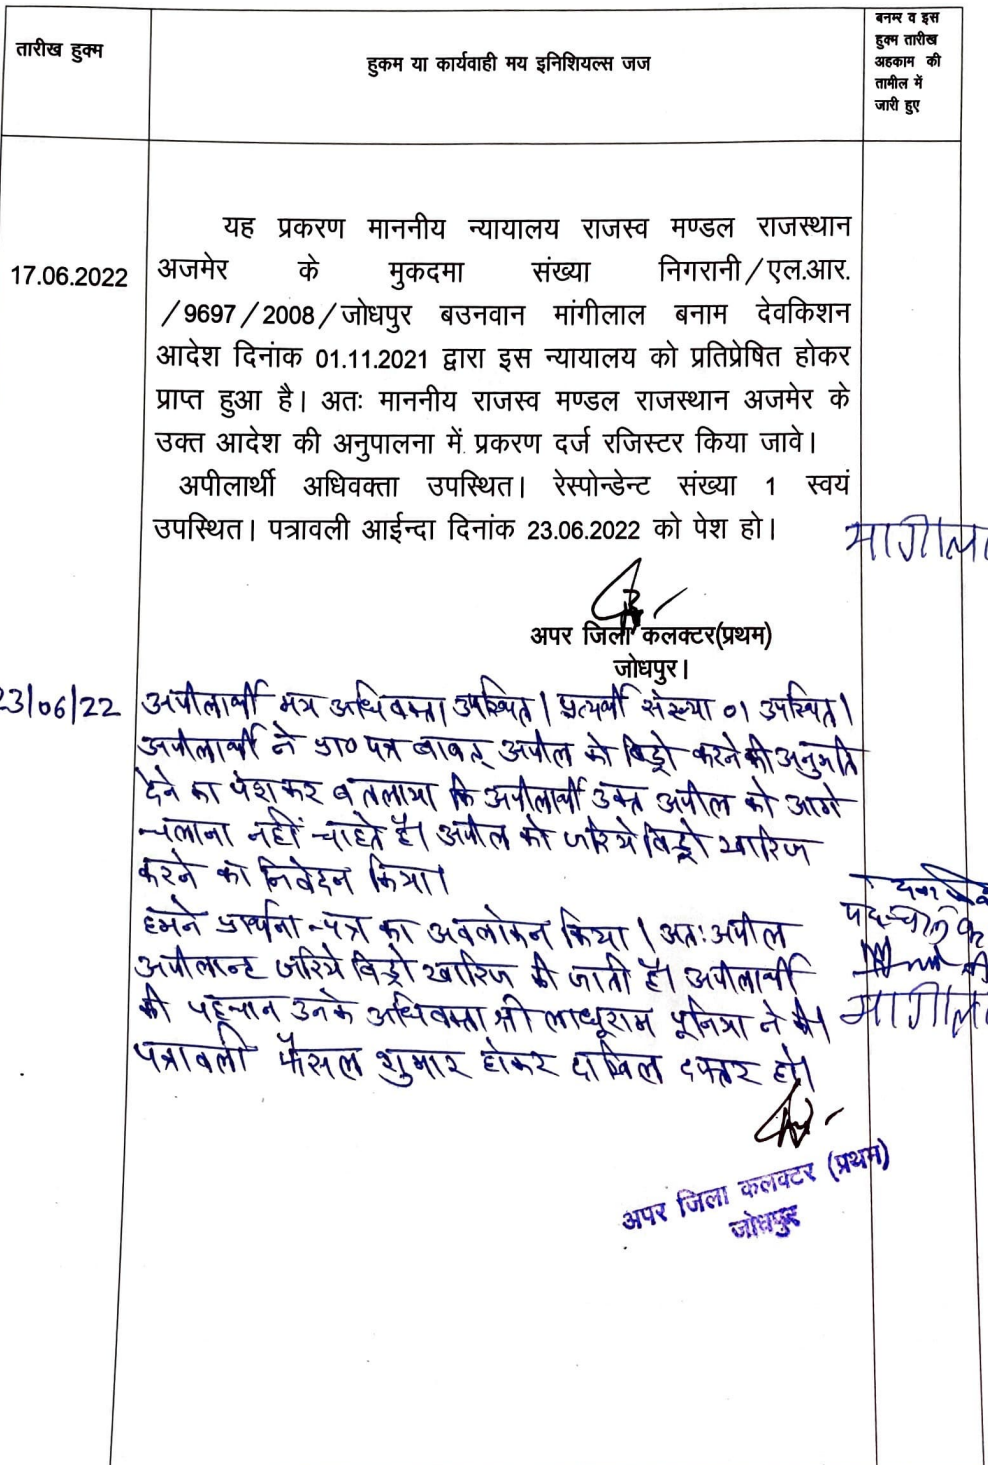 तारीख हुक्म
हुकम या कार्यवाही मय इनिशियल्स जज
बनम्र व इस
हुक्म तारीख
अहकाम की
तामील में
जारी हुए
17.06.2022
यह प्रकरण माननीय न्यायालय राजस्व मण्डल राजस्थान
अजमेर के मुकदमा संख्या निगरानी/एल.आर.
/9697/2008/जोधपुर बउनवान मांगीलाल बनाम देवकिशन
आदेश दिनांक 01.11.2021 द्वारा इस न्यायालय को प्रतिप्रेषित होकर
प्राप्त हुआ है। अतः माननीय राजस्व मण्डल राजस्थान अजमेर के
उक्त आदेश की अनुपालना में प्रकरण दर्ज रजिस्टर किया जावे।
अपीलार्थी अधिवक्ता उपस्थित। रेस्पोन्डेन्ट संख्या 1 स्वयं
उपस्थित। पत्रावली आईन्दा दिनांक 23.06.2022 को पेश हो।
मागीला
अपर जिला कलक्टर(प्रथम)
जोधपुर।
23/06/22 अपीलार्थी मय अधिवक्ता उपस्थित। प्रत्यर्थी संख्या 01 उपस्थित।
अपीलार्थी ने प्रा० पत्र बाबत् अपील को विड्रो करने की अनुमति
देने का पेश कर बतलाया कि अपीलार्थी उक्त अपील को आगे
चलाना नहीं चाहते है। अपील को जरिये विड्रो खारिज
करने का निवेदन किया।
हमने प्रार्थना-पत्र का अवलोकन किया। अतः अपील
अपीलान्ट जरिये विड्रो खारिज की जाती है। अपीलार्थी
की पहचान उनके अधिवक्ता श्री लाधूराम पूनिया ने की।
पत्रावली फैसल शुमार होकर दाखिल दफ्तर हो।
मागीला
अपर जिला कलक्टर (प्रथम)
जोधपुर